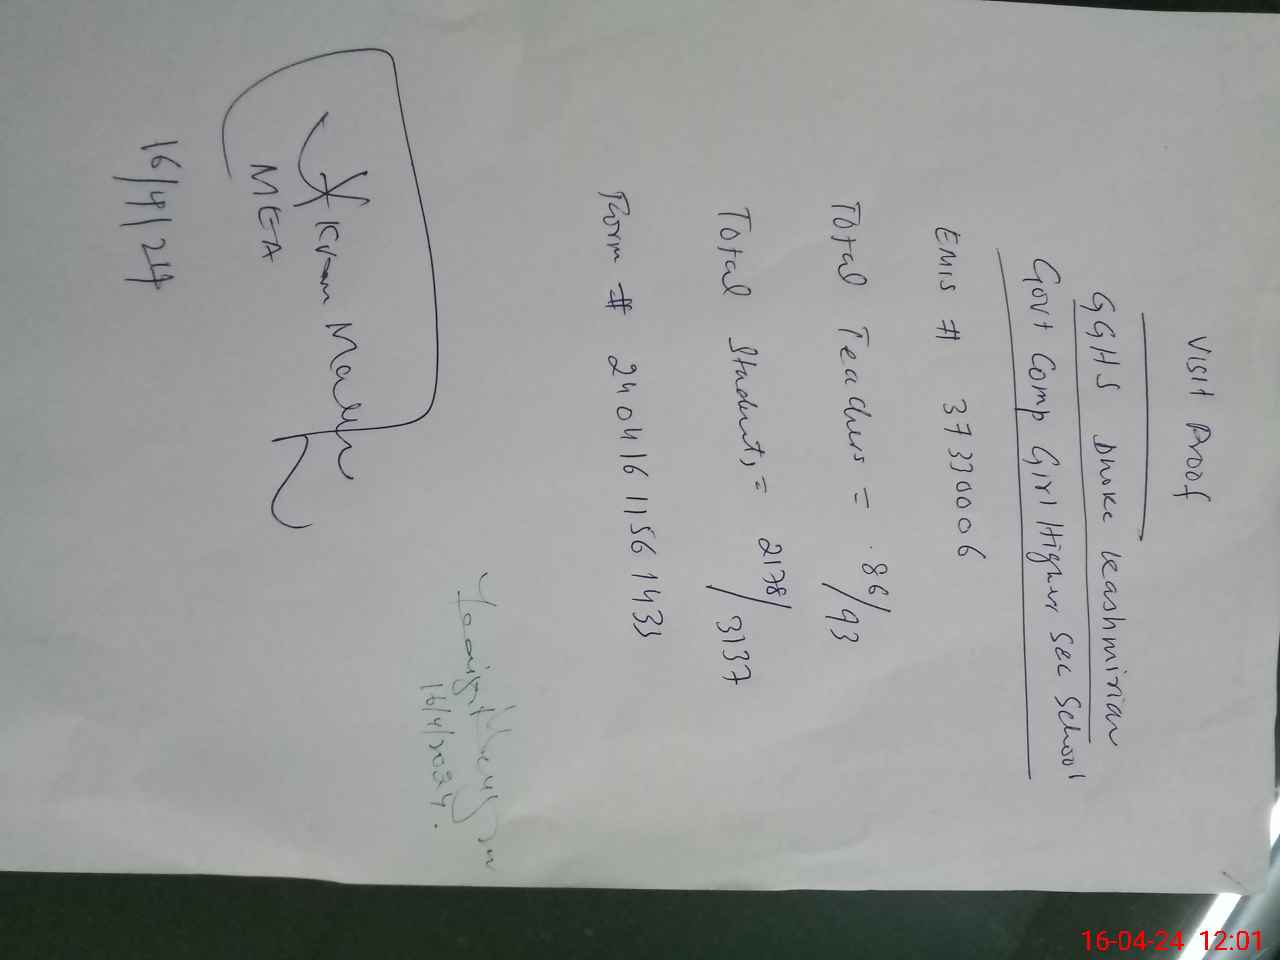 Visit Proof
GGHS Dhoke Kashmirian
Govt Comp Girl Higher Sec School
EMIS # 37330006
Total Teachers = 86/93
Total Students = 2178/3137
Form # 24041611561433
Akram Malik
MEA
16/4/24
16/4/2024.
16-04-24 12:01